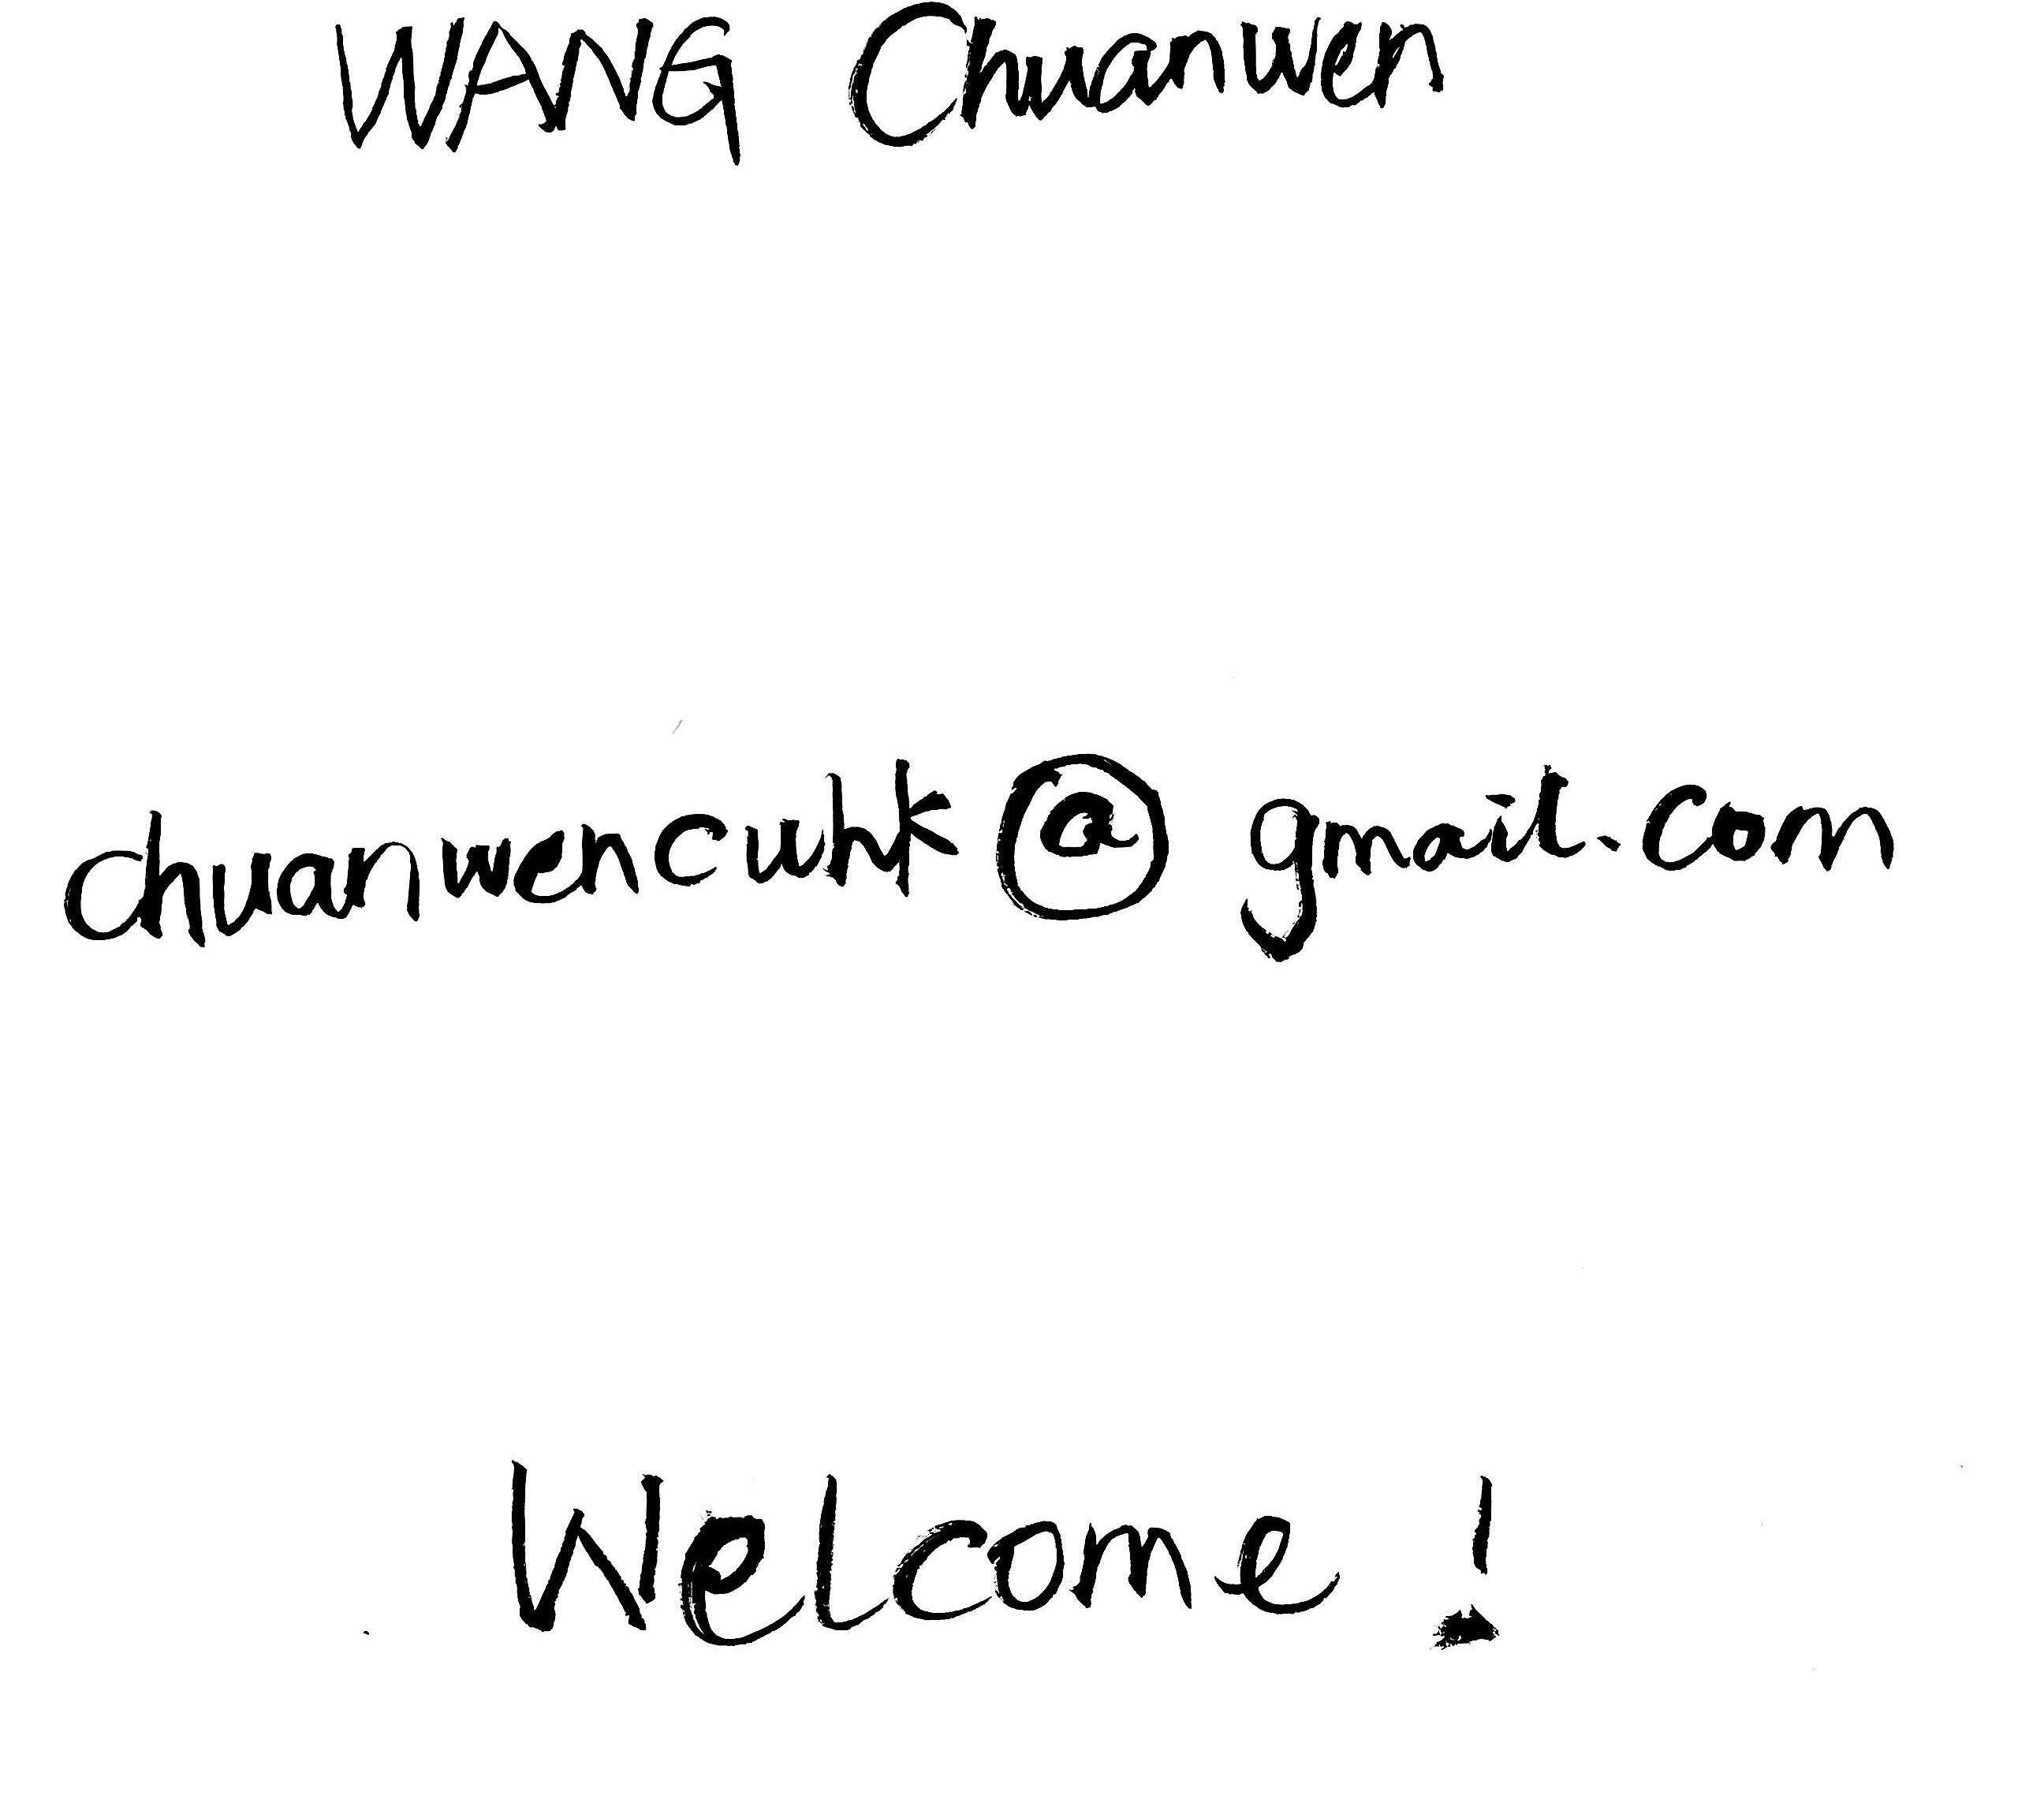 WANG Chuanwen
chuanwencuhk@gmail.com
Welcome!